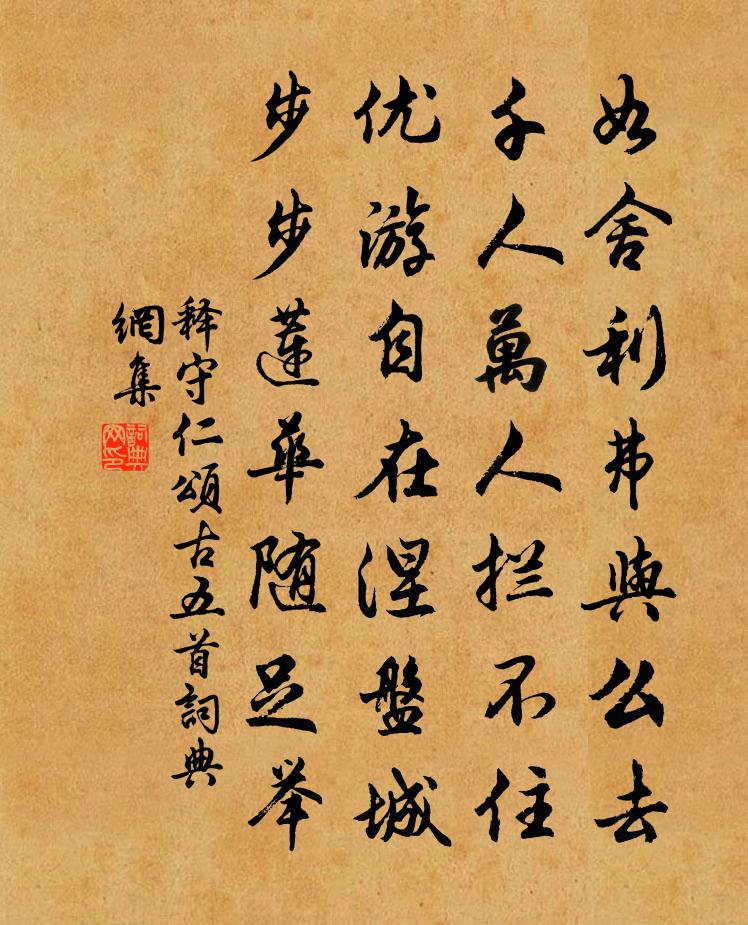 如舍利弗與么去
千人萬人拦不住
优游自在涅盤城
步步蓮華随足举
释守仁頌古五首詞典
網集
詞典
网印